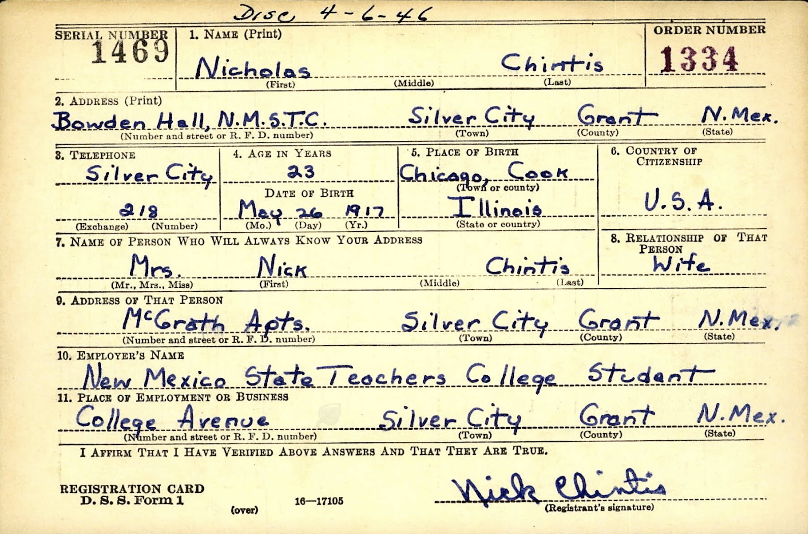 Disc. 4-6-46
SERIAL NUMBER 1. NAME (Print) ORDER NUMBER
1469 Nicholas Chintis 1334
(First) (Middle) (Last)
2. ADDRESS (Print)
Bowden Hall, N.M.S.T.C. Silver City Grant N.Mex.
(Number and street or R. F. D. number) (Town) (County) (State)
3. TELEPHONE 4. AGE IN YEARS 5. PLACE OF BIRTH 6. COUNTRY OF CITIZENSHIP
Silver City 23 Chicago, Cook
(Town or county)
DATE OF BIRTH
218 May 26 1917 Illinois U.S.A.
(Exchange) (Number) (Mo.) (Day) (Yr.) (State or country)
7. NAME OF PERSON WHO WILL ALWAYS KNOW YOUR ADDRESS 8. RELATIONSHIP OF THAT PERSON
Mrs. Nick Chintis Wife
(Mr., Mrs., Miss) (First) (Middle) (Last)
9. ADDRESS OF THAT PERSON
McGrath Apts. Silver City Grant N.Mex.
(Number and street or R. F. D. number) (Town) (County) (State)
10. EMPLOYER'S NAME
New Mexico State Teachers College Student
11. PLACE OF EMPLOYMENT OR BUSINESS
College Avenue Silver City Grant N.Mex.
(Number and street or R. F. D. number) (Town) (County) (State)
I AFFIRM THAT I HAVE VERIFIED ABOVE ANSWERS AND THAT THEY ARE TRUE.
REGISTRATION CARD Nick Chintis
D. S. S. Form 1 (over) 16—17105 (Registrant's signature)